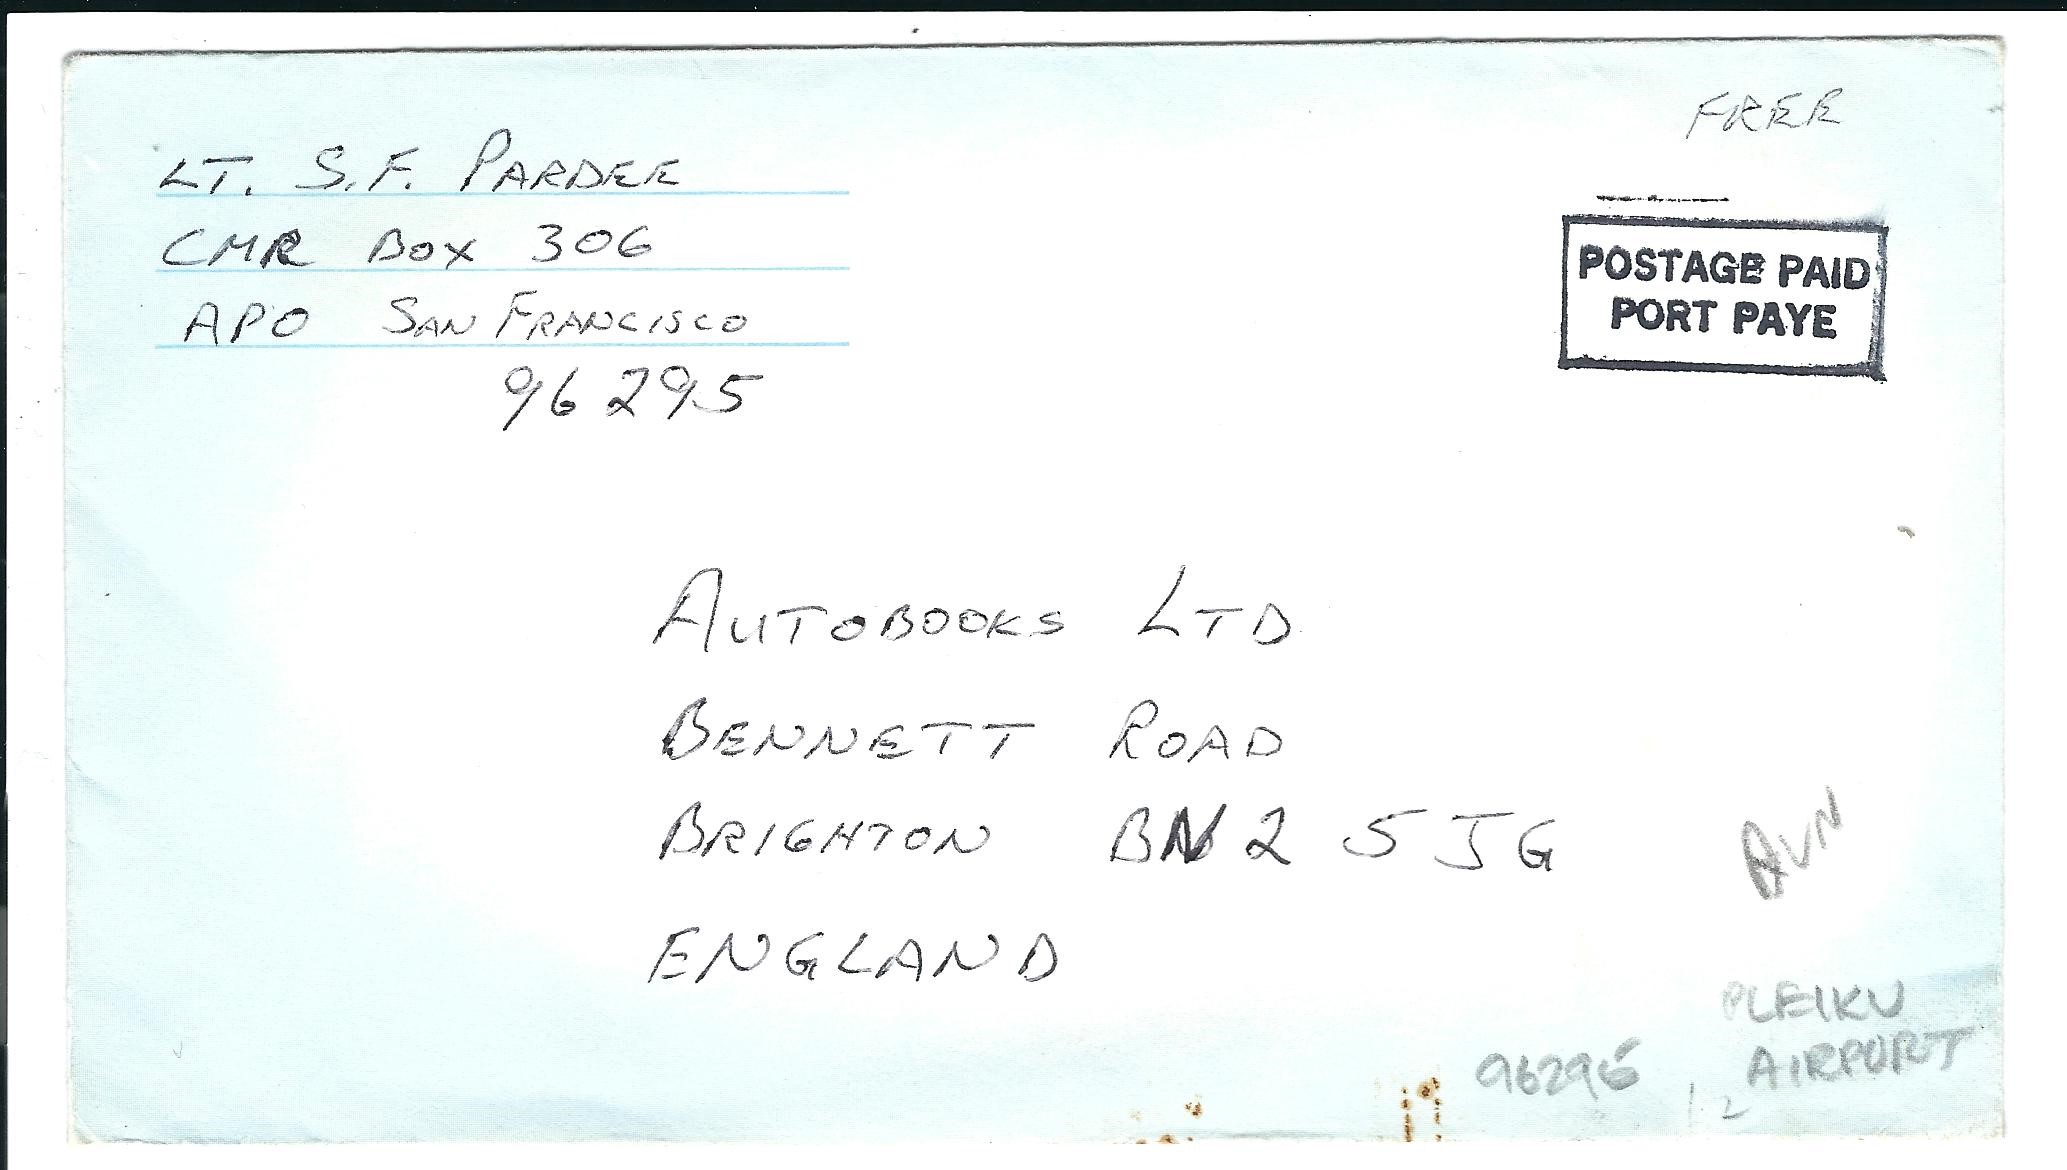 FREE
LT. S.F. PARDEE
CMR BOX 306
APO SAN FRANCISCO
96295
POSTAGE PAID
PORT PAYE
AUTOBOOKS LTD
BENNETT ROAD
BRIGHTON BN2 5JG
ENGLAND
AVN
PLEIKU
AIRPORT
96295
12